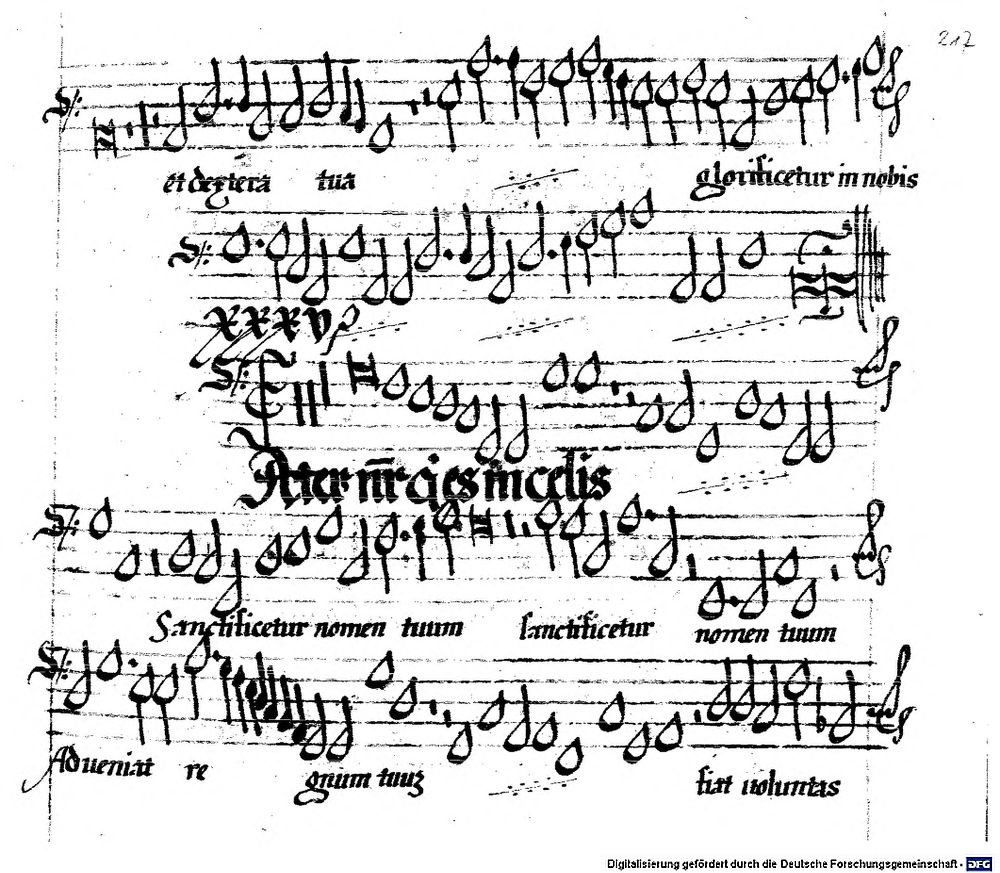 217
et dextera tua glorificetur in nobis
XXXV
Pater nr̄ q es in celis
Sanctificetur nomen tuum sanctificetur nomen tuum
Adueniat regnum tuuȝ fiat uoluntas
Digitalisierung gefördert durch die Deutsche Forschungsgemeinschaft - DFG